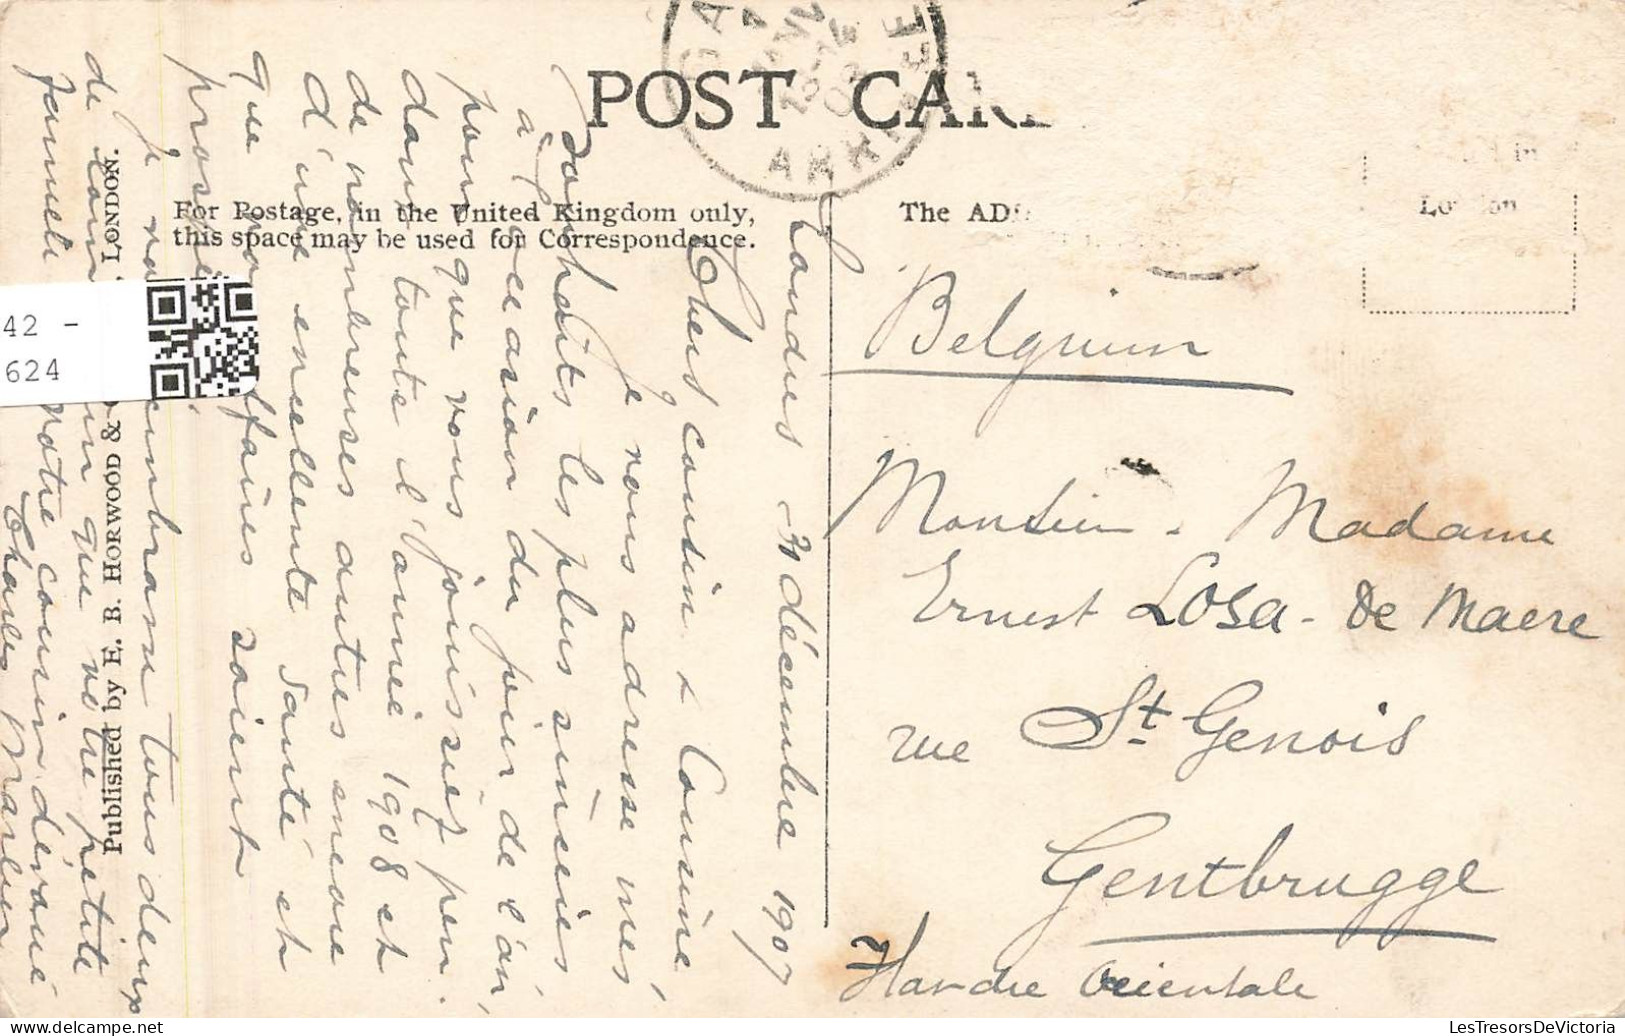 POST CAR
For Postage, in the United Kingdom only,
this space may be used for Correspondence.
The AD
London
Londres 31 décembre 1907
Chers cousin & Cousine
Je vous adresse mes
souhaits les plus sincères
à l'occasion du jour de l'an,
pour que vous jouissiez pen-
dant toute l'année 1908 et
de nombreuses autres encore
d'une excellente santé et
que vos affaires soient
prospères.
Je vous embrasse tous deux
de même que votre petite
famille votre cousin dévoué
Charles
Belgium
Monsieur - Madame
Ernest Losa - De Maere
rue St Genois
Gentbrugge
Flandre Orientale
Published by E. B. HORWOOD & LONDON.
ARRIVEE
42 -
624
LesTresorsDeVictoria